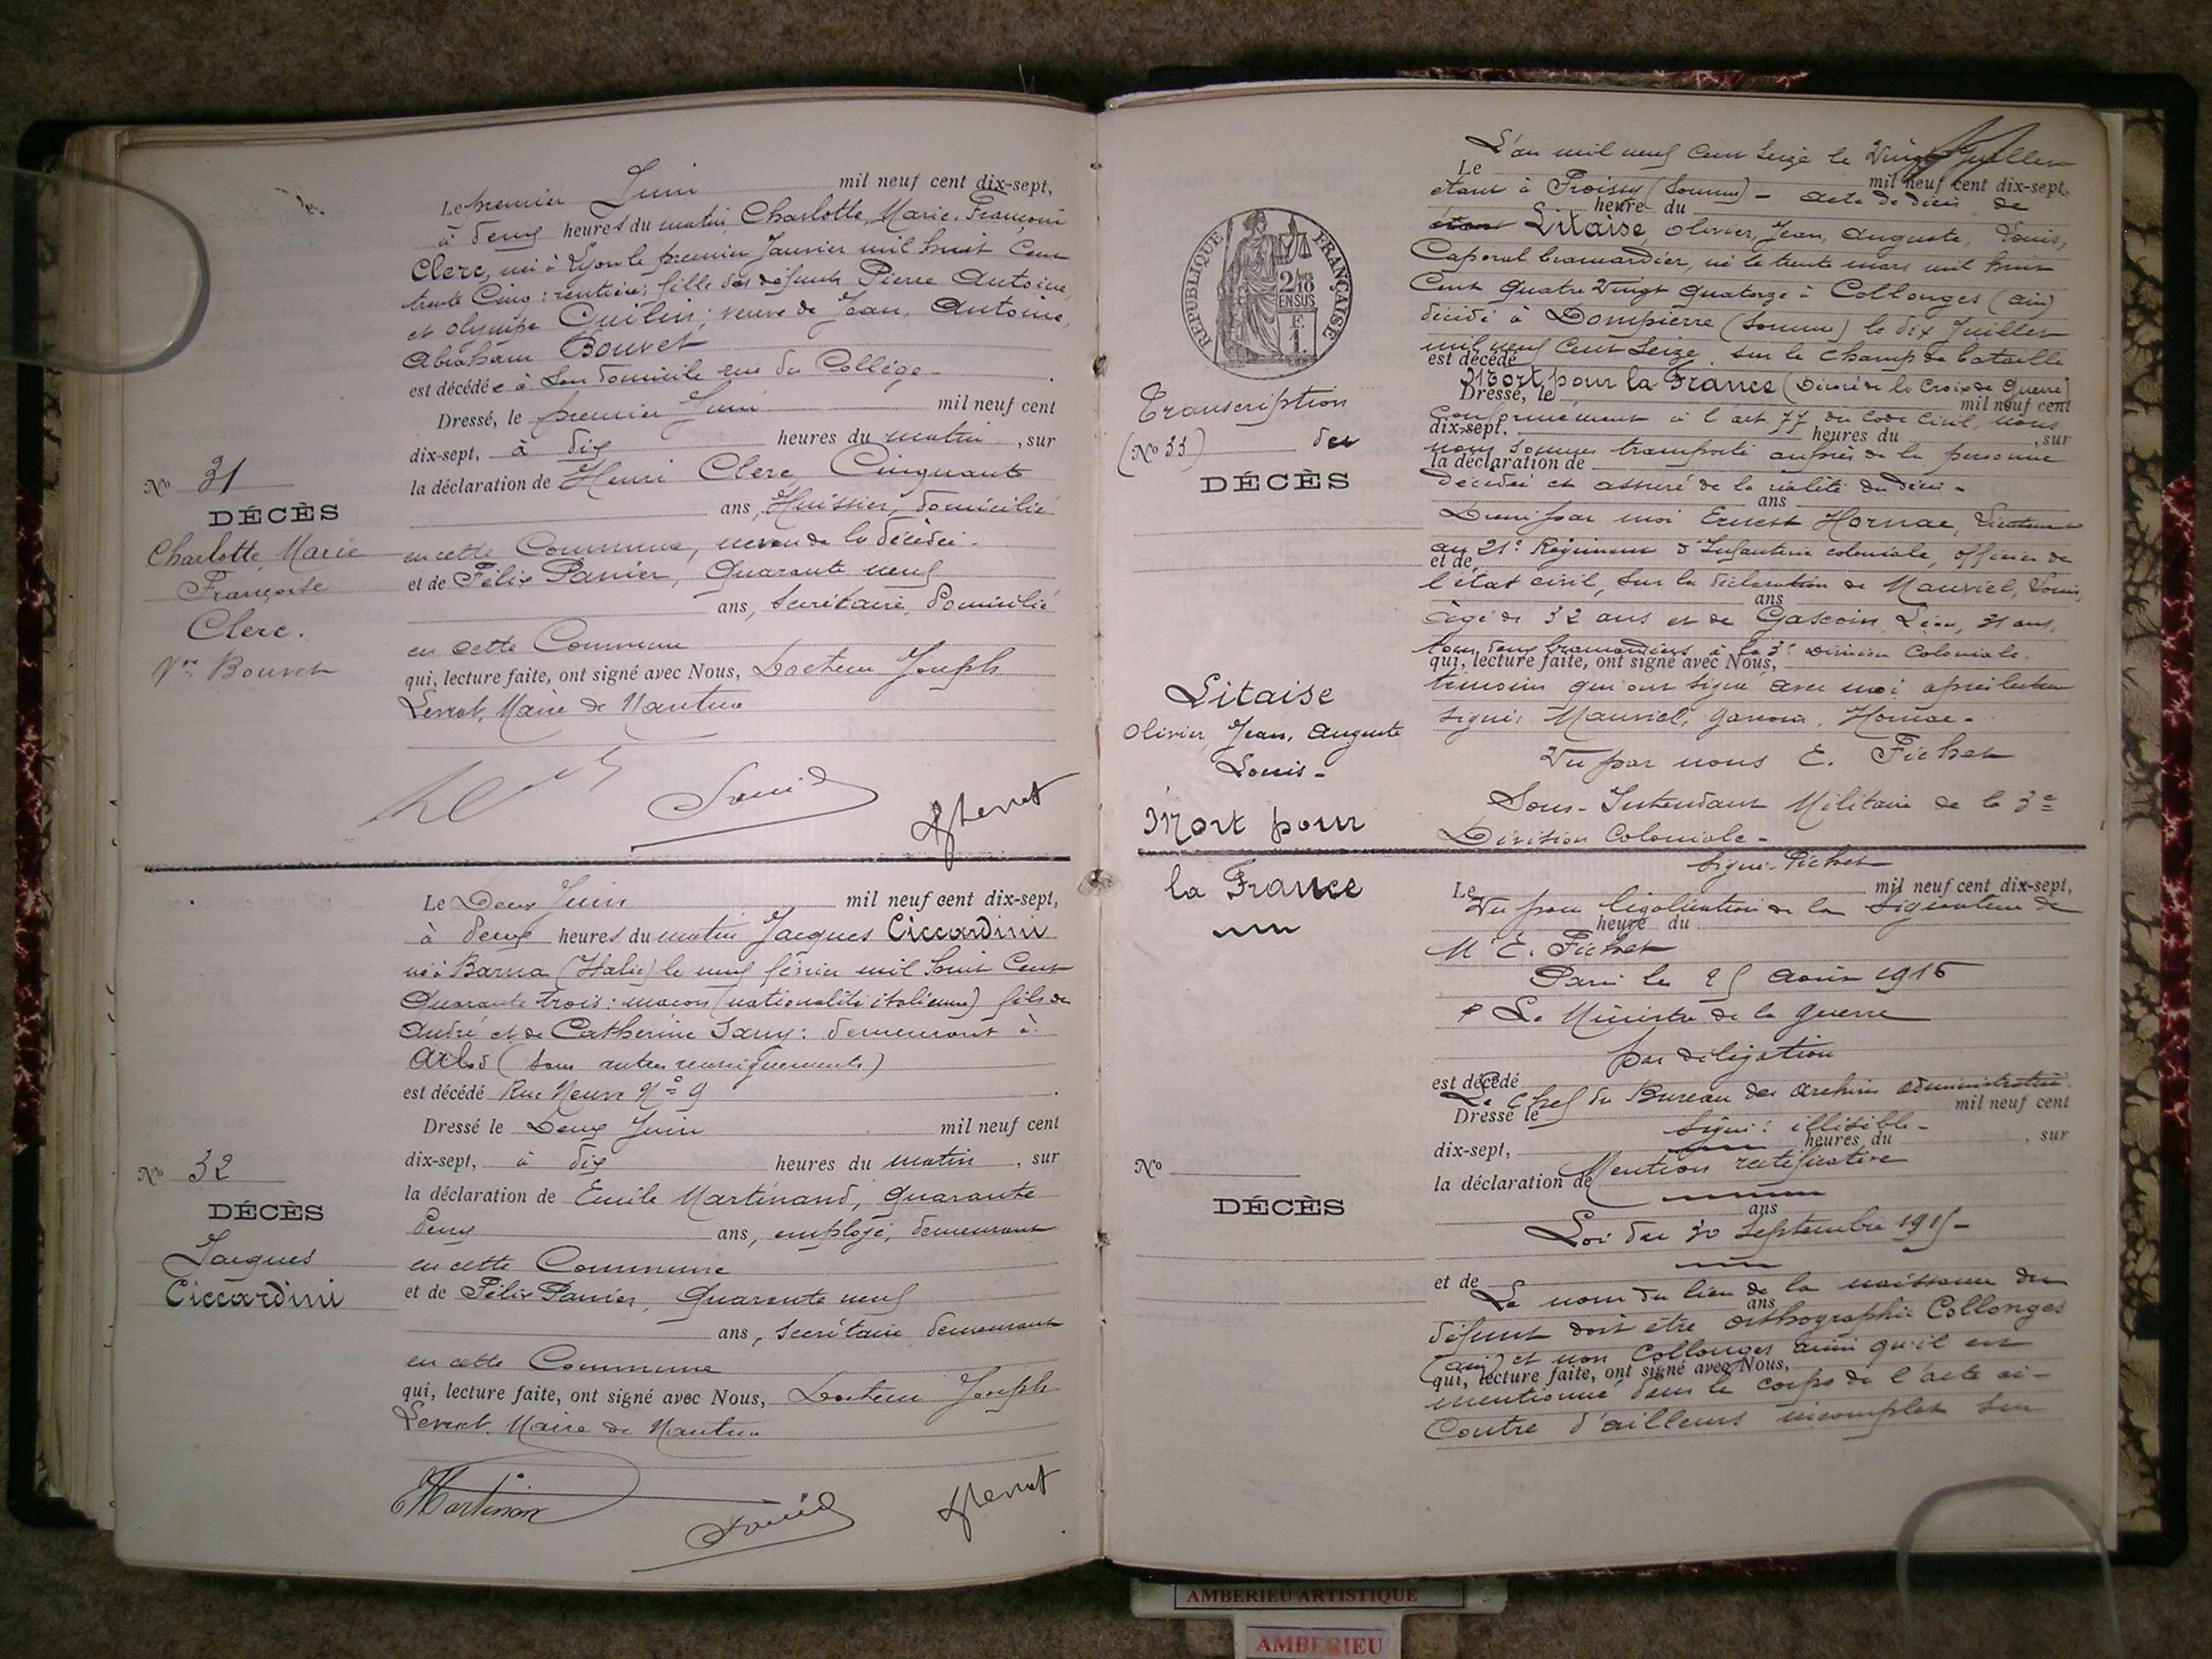 Le premier Juin mil neuf cent dix-sept,
à deux heures du matin Charlotte, Marie, Françoise
Clerc, née à Lyon le premier Janvier mil huit Cent
trente Cinq: rentière; fille des défunts Pierre Antoine,
et olympe Guilin; veuve de Jean, Antoine,
Abraham Bouvet
est décédée à Son domicile rue du Collège.
Dressé, le premier Juin mil neuf cent
dix-sept, à dix heures du matin, sur
la déclaration de Henri Clerc, Cinquante
ans, Huissier, domicilié
en cette Commune, neveu de la décédée.
et de Félix Panier, Quarante neuf
ans, Secrétaire, Domicilié
en cette Commune
qui, lecture faite, ont signé avec Nous, Docteur Joseph
Levrat, Maire de Nantua
No 31
DÉCÈS
Charlotte, Marie
Françoise
Clerc.
Vve Bouvet
Le Deux Juin mil neuf cent dix-sept,
à deux heures du matin Jacques Ciccardini
né à Barna (Italie) le neuf février mil huit Cent
Quarante trois: maçon (nationalité italienne) fils de
André et de Catherine Samy: demeurant à
Arbos (sans autres renseignements)
est décédé Rue Neuve No 9
Dressé le Deux Juin mil neuf cent
dix-sept, à dix heures du matin, sur
la déclaration de Emile Martinand, Quarante
deux ans, employé, demeurant
en cette Commune
et de Félix Panier, Quarante neuf
ans, Secrétaire demeurant
en cette Commune
qui, lecture faite, ont signé avec Nous, Docteur Joseph
Levrat, Maire de Nantua
No 32
DÉCÈS
Jacques
Ciccardini
RÉPUBLIQUE FRANÇAISE
2/10
EN SUS
1 F.
Transcription
(No 33) de
DÉCÈS
Litaise
Olivier, Jean, Auguste
Louis -
Mort pour
la France
L'an mil neuf Cent Seize le Vingt Juillet
Le mil neuf cent dix-sept,
étant à Proissy (Somme) - acte de décès de
heure du
étant Litaise, Olivier, Jean, Auguste, Louis,
Caporal brancardier, né le trente mars mil huit
Cent Quatre Vingt Quatorze à Collonges (Ain)
décédé à Dompierre (Somme) le dix Juillet
mil neuf Cent Seize, sur le champ de bataille
est décédé
Mort pour la France (Décoré de la Croix de Guerre)
Dressé, le mil neuf cent
Conformément à l'art. 77 du Code Civil, nous
dix-sept, heures du , sur
nous sommes transporté auprès de la personne
la déclaration de
décédée et assuré de la réalité du décès -
ans
Dressé par moi Ernest Hornac, Lieutenant
au 21e Régiment d'Infanterie coloniale, officier de
et de
l'état civil, sur la déclaration de Mauriel, Louis,
ans
âgé de 32 ans et de Gascoin Léon, 31 ans,
tous deux brancardiers à la 3e Division Coloniale.
qui, lecture faite, ont signé avec Nous,
témoins qui ont signé avec moi après lecture
signé: Mauriel, Gascoin, Hornac -
Vu par nous E. Fichet
Sous-Intendant Militaire de la 3e
Division Coloniale -
Signé: Fichet
Le mil neuf cent dix-sept,
Vu pour légalisation de la Signature de
heure du
M E. Fichet
Paris le 25 Août 1916
P Le Ministre de la Guerre
par délégation
est décédé
Le Chef du Bureau des Archives administratives
Dressé le mil neuf cent
Signé: illisible -
dix-sept, heures du , sur
Mention rectificative
la déclaration de
ans
Loi du 30 Septembre 1915 -
et de
Le nom du lieu de la naissance du
ans
défunt doit être orthographié Collonges
(Ain) et non Collonges ainsi qu'il est
qui, lecture faite, ont signé avec Nous,
mentionné dans le corps de l'acte ci-
Contre d'ailleurs incomplet sur
No
DÉCÈS
AMBERIEU ARTISTIQUE
AMBERIEU